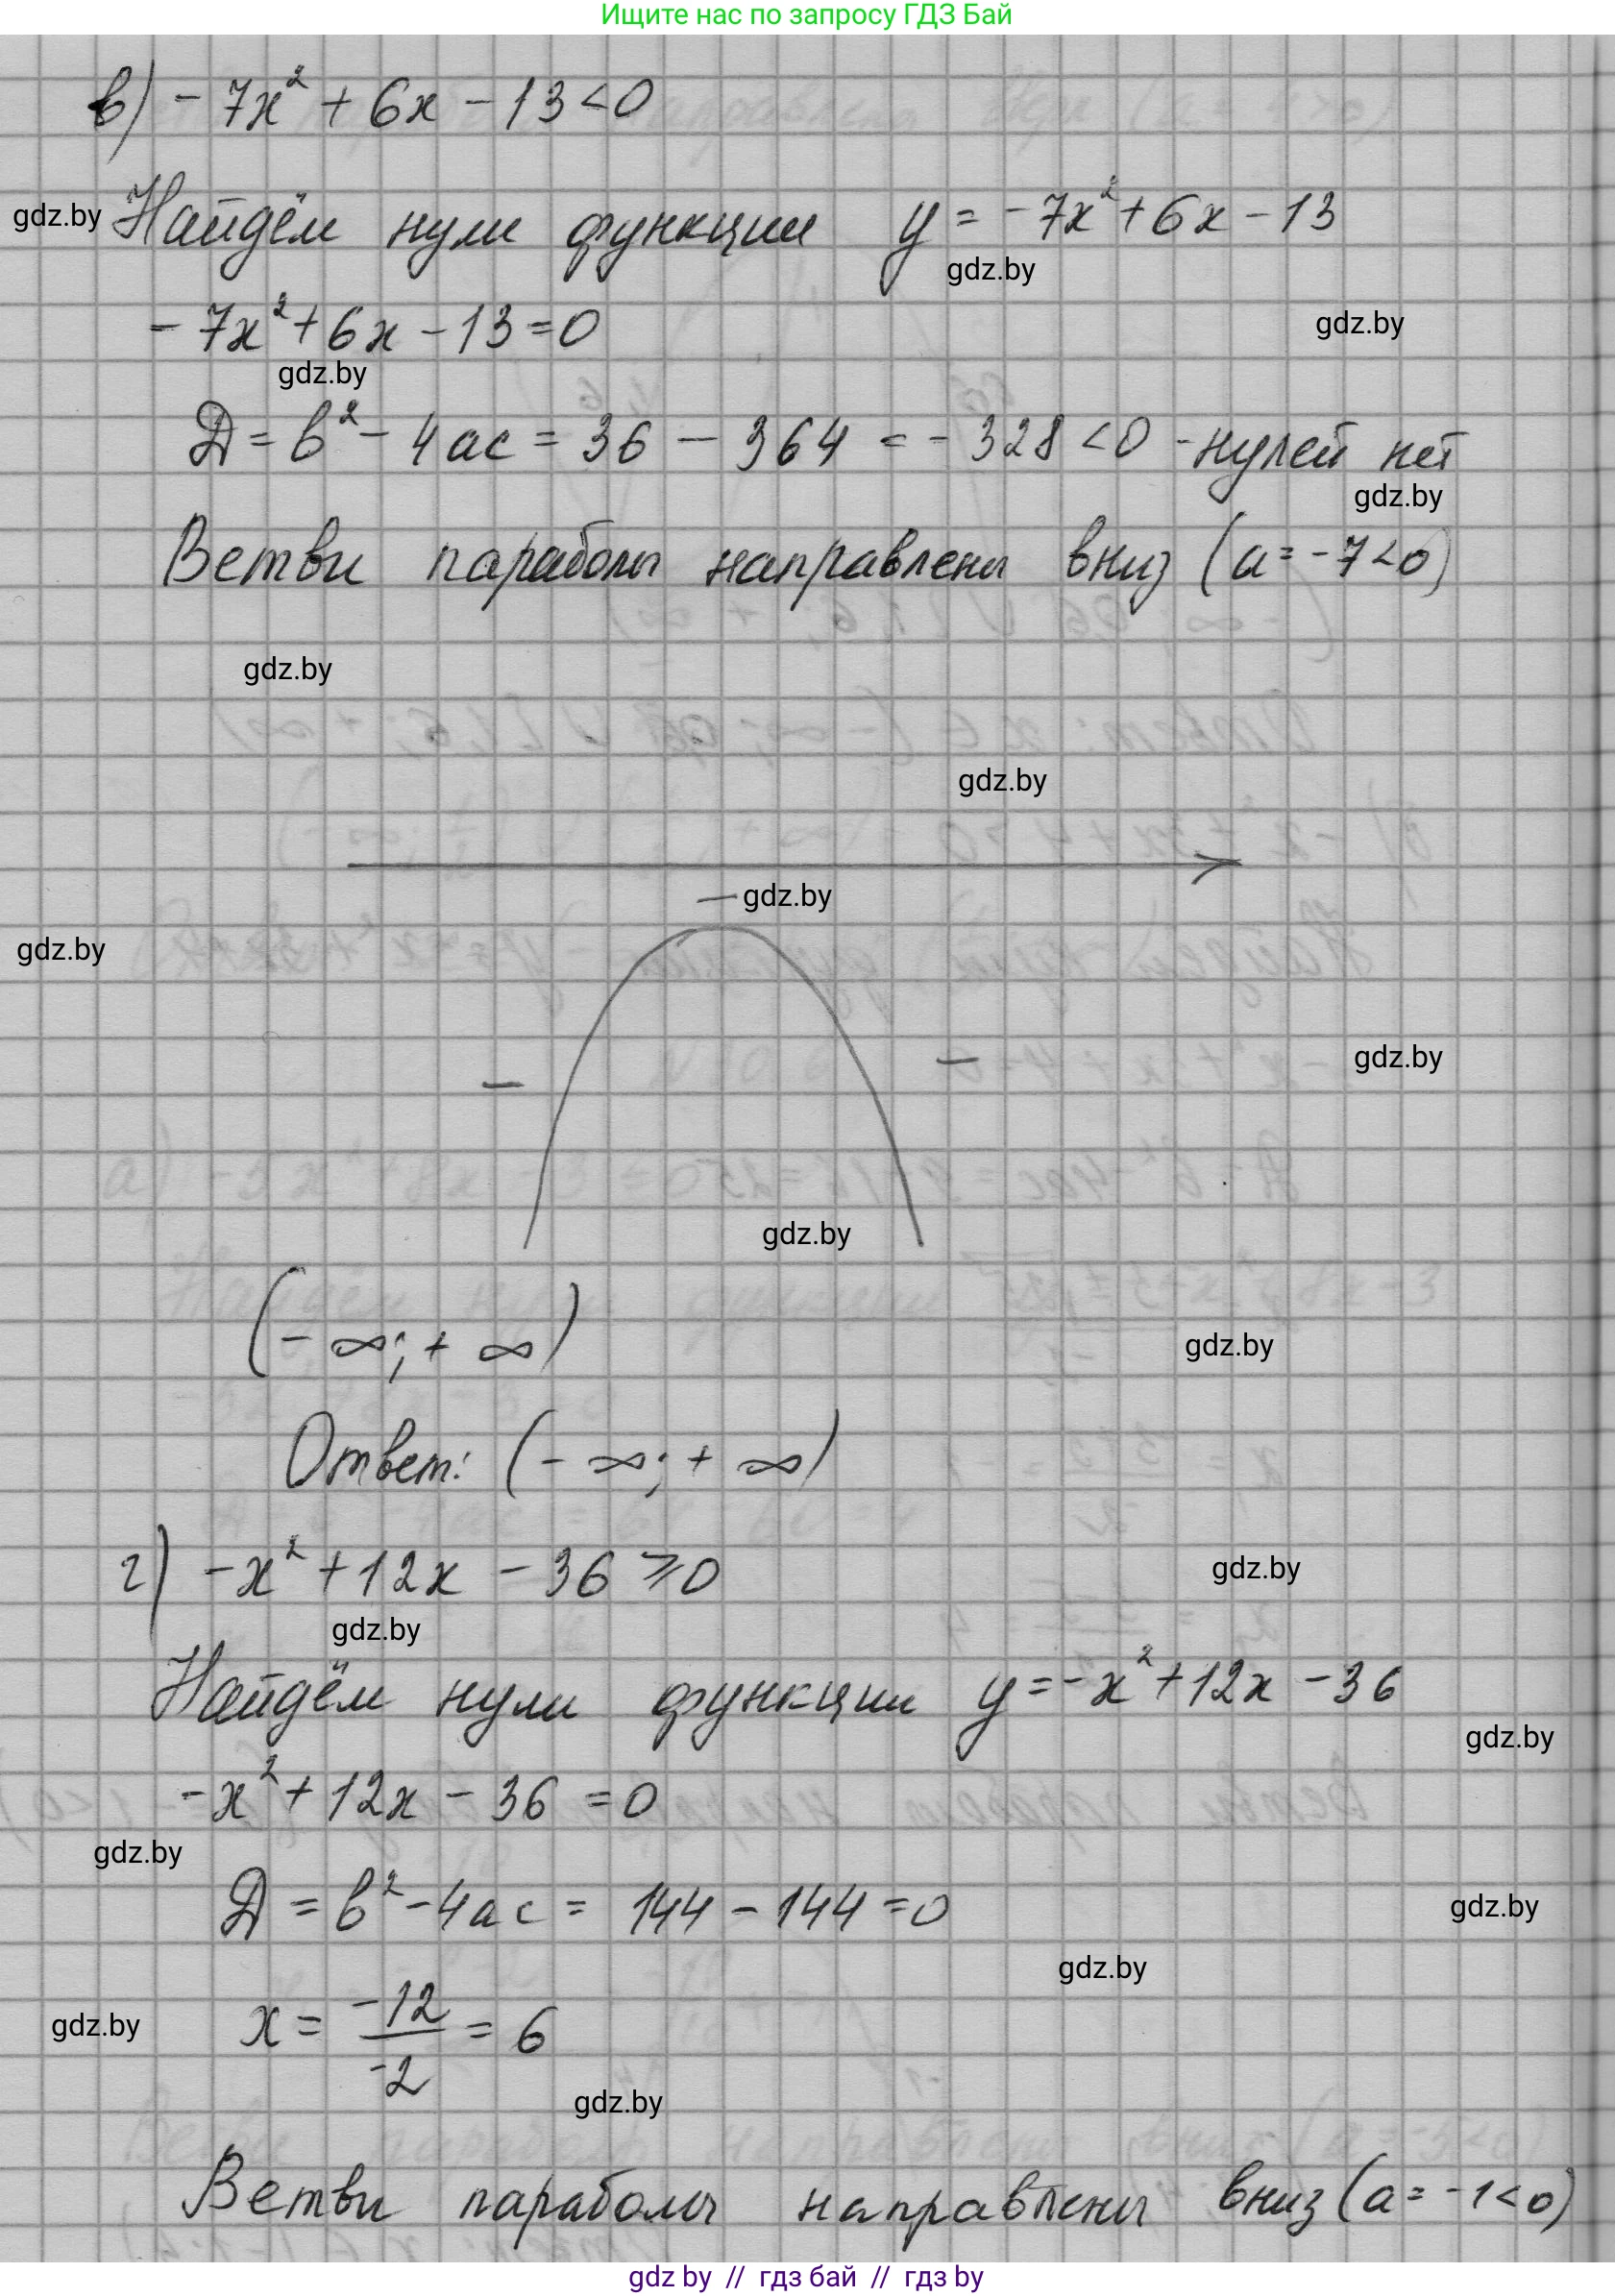 Ищите нас по запросу ГДЗ Бай
в) -7x² + 6x - 13 < 0
gdz.by Найдём нули функции y = -7x² + 6x - 13
gdz.by
-7x² + 6x - 13 = 0
gdz.by
gdz.by
Д = b² - 4ac = 36 - 364 = -328 < 0 - нулей нет
gdz.by
Ветви параболы направлены вниз (a = -7 < 0)
gdz.by
gdz.by
− gdz.by
gdz.by
− −
gdz.by
gdz.by
(-∞; +∞)
gdz.by
Ответ: (-∞; +∞)
г) -x² + 12x - 36 ⩾ 0
gdz.by
gdz.by
Найдём нули функции y = -x² + 12x - 36
gdz.by
-x² + 12x - 36 = 0
gdz.by
Д = b² - 4ac = 144 - 144 = 0
gdz.by
gdz.by
gdz.by x = -12/-2 = 6
gdz.by
Ветви параболы направлены вниз (a = -1 < 0)
gdz by // гдз бай // гдз by